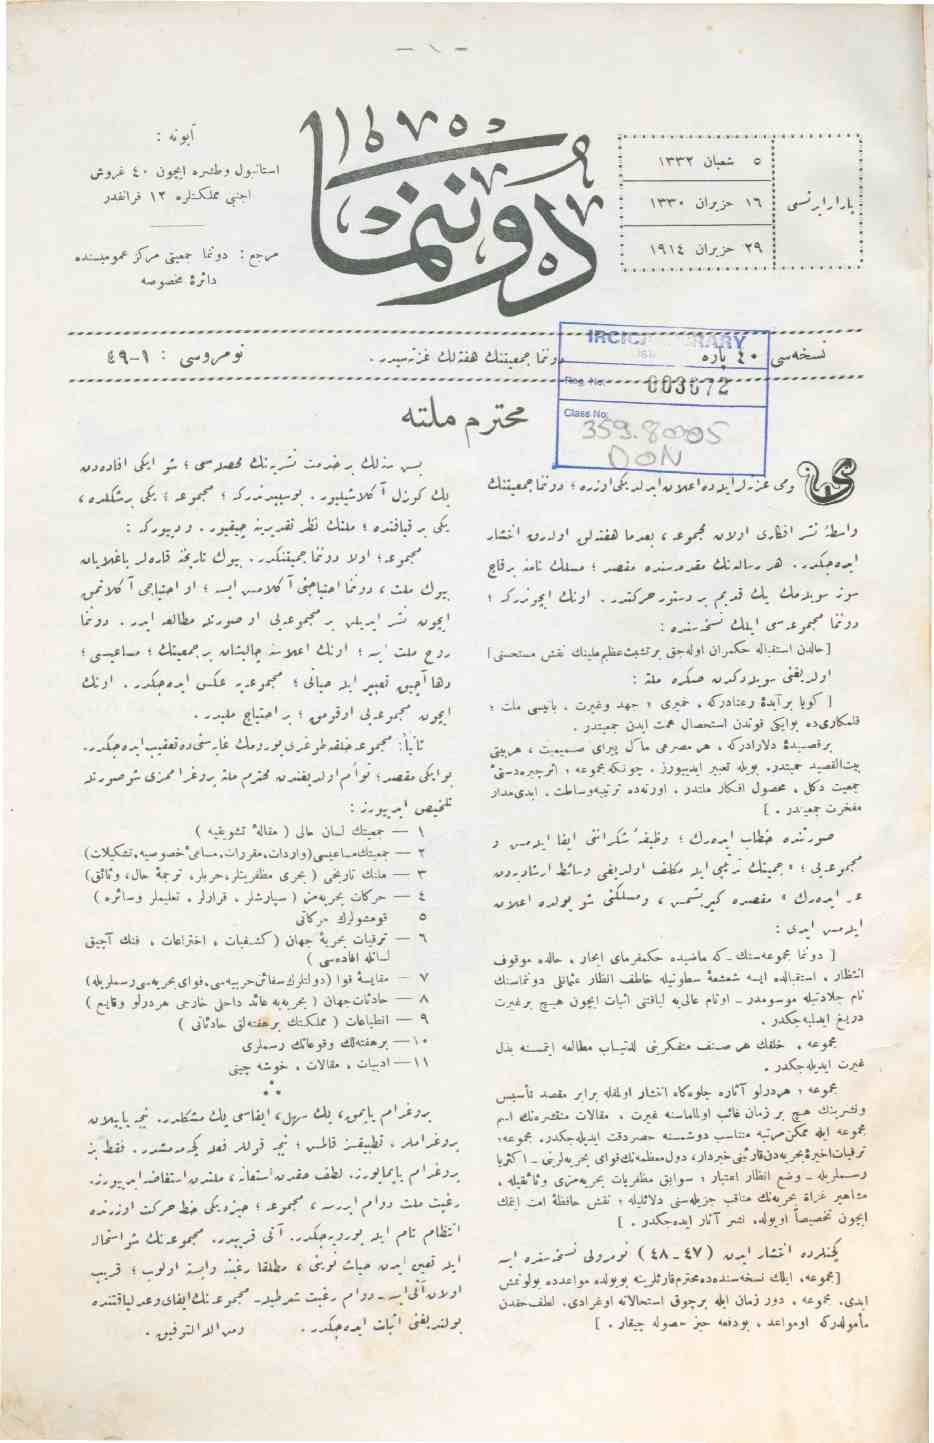 — ١ —
پازار ایرتسی
٥ شعبان ١٣٣٢
١٦ حزیران ١٣٣٠
٢٩ حزیران ١٩١٤
دونما
آبونه :
استانبول وطشره ایچون ٤٠ غروش
اجنبی مملکتلره ١٢ فرانقدر
مرجع : دونما جمعیتی مرکز عمومیسنده
دائرهٔ مخصوصه
نسخه‌سی ٤٠ پاره
دونما جمعیتنك هفته‌لك غزته‌سیدر .
نومروسی : ١-٤٩
IRCICA LIBRARY
Reg. No: 003672
Class No:
359.80005
DON
محترم ملته
یومی غزته‌لر ایله ده اعلان ایدلدیکی اوزره ؛ دونما جمعیتنك
واسطهٔ نشر افکاری اولان مجموعه ، بعدما هفته‌لق اوله‌رق انتشار
ایده‌جکدر . هر رساله‌نك مقدمه‌سنده مقصد ؛ مسلك نامنه برقاچ
سوز سویله‌مك پك قدیم بر دستور حرکتدر . اونك ایچوندرکه ؛
دونما مجموعه‌سی ایلك نسخه‌سنده :
[ حالدن استقباله حکمران اوله‌جق بر تشبث عظیم ملینك نقش مستحسنی ]
اولدیغنی سویله‌دکدن صکره ملته :
[ کویا بر آبدهٔ رعنادرکه ، خمیری ؛ جهد وغیرت . بانیسی ملت ؛
فلمکاری‌ده بوایکی قوتدن استحصال همت ایدن جمعیتدر .
بر قصیدهٔ دلارادرکه ، هر مصرعی مآل پیرای صمیمیت ، هر بیتی
بیت‌القصید حمیتدر . بویله تعبیر ایدییورز . چونکه مجموعه ، اثر چیره‌دستی‌ٔ
جمعیت دکل ، محصول افکار ملتدر . اورته‌ده ترتیبه وساطت . ابدی مدار
مفخرت جمعیتدر . ]
صورتنده خطاب ایده‌رك ؛ وظیفهٔ شکرانی ایفا ایله‌مس و
مجموعه‌یی ؛ « جمعیتك ترتیبی ایله مکلف اولدیغی وسائط ارشادیه‌دن
عد ایده‌رك » مقصده کیریشمس ، ومسلکنی شو یولده اعلان
ایله‌مس ایدی :
[ دونما مجموعه‌سنك - که ماضیده حکمفرمای ابحار ، حالده موقوف
انتظار ، استقبالده ایسه شعشعهٔ سطوتیله خاطف انظار عثمانلی دونماسنك
نام جلادتیله موسومدر - اونام عالی‌یه لیاقتنی اثبات ایچون هیچ بر غیرت
دریغ ایدلمیه‌جکدر .
مجموعه ، خلقك هر صنف متفکرینی لذتیاب مطالعه ایتمسنه بذل
غیرت ایدیله‌جکدر .
مجموعه ؛ هر درلو آثاره جلوه‌کاه انتشار اولمقله برابر مقصد تأسیس
ونشرینك هیچ بر زمان غائب اولماماسنه غیرت . مقالات منتشره‌نك اسم
مجموعه ایله ممکن مرتبه متناسب دوشمسنه حصر دقت ایدیله‌جکدر . مجموعه ؛
ترقیات اخیرهٔ بحریه‌دن قارئینی خبردار ، دول معظمه‌نك قوای بحریه‌لرینی - اکثریا
رسملریله - وضع انظار اعتبار ؛ سوابق مظفریات بحریه‌مزی وثائقیله ،
مشاهیر غزاة بحریه‌نك مناقب جزیله‌سنی دلائلیله ؛ نقش حافظهٔ امت ایتمك
ایچون تخصیصاً اویولده نشر آثار ایده‌جکدر . ]
کچنلرده انتشار ایدن (٤٧ - ٤٨) نومرولی نسخه‌سنده ایسه
[ مجموعه ، ایلك نسخه‌سنده‌ده محترم قارئلرینه بویولده مواعدده بولونمش
ایدی . مجموعه ، دور زمان ایله برچوق استحالاته اوغرادی . لطف حقدن
مأمولدرکه اومواعد ، بودفعه حیز حصوله چیقار . ]
بش سنه‌لك بر خدمت نشریه‌نك محصلاسی ؛ شو ایکی افاده‌دن
پك کوزل آکلاشیلییور . بوسببدندرکه ؛ مجموعه ؛ یکی بر شکلده ،
یکی بر قیافتده ؛ ملتك نظر تقدیرینه چیقییور . ودییورکه :
مجموعه ؛ اولا دونما جمعیتنکدر . بیوك تاریخنه قاره‌لر باغلایان
بیوك ملت ، دونما احتیاجنی آکلامس ایسه ؛ او احتیاجی آکلاتمق
ایچون نشر ایدیلن بر مجموعه‌یی او صورتله مطالعه ایدر . دونما
روح ملت ایسه ؛ اونك اعلاسنه چالیشان بر جمعیتك ؛ مساعیسی ؛
دها آچیق تعبیر ایله حیاتی ؛ مجموعه‌یه عکس ایده‌جکدر . اونك
ایچون مجموعه‌یی اوقومق ؛ بر احتیاج ملیدر .
ثانیاً : مجموعه خلقه طوغری یورومك غایه‌سنی‌ده تعقیب ایده‌جکدر .
بوایکی مقصد ؛ توأم اولدیغندن محترم ملته پروغراممزی شو صورتله
تلخیص ایدییورز :
١ — جمعیتك لسان حالی ( مقالهٔ تشویقیه )
٢ — جمعیتك مساعیسی ( واردات ، مقررات ، مساعی‌ٔ خصوصیه ، تشکیلات )
٣ — ملتك تاریخی ( بحری مظفریتلر ، حربلر ، ترجمهٔ حال ، وثائق )
٤ — حرکات بحریه‌مز ( سیارشلر ، قرارلر ، تعلیملر وسائره )
٥ — قومشولرك حرکاتی
٦ — ترقیات بحریهٔ جهان ( کشفیات ، اختراعات ، فنك آچیق
لسانله افاده‌سی )
٧ — مقایسهٔ قوا ( دولتلرك سفائن حربیه‌سی ، قوای بحریه‌سی رسملریله )
٨ — حادثات جهان ( بحریه‌یه عائد داخلی خارجی هر درلو وقایع )
٩ — انطباعات ( مملکتك بر هفته‌لق حادثاتی )
١٠ — بر هفته‌لك وقوعاتك رسملری
١١ — ادبیات ، مقالات ، خوشه چینی
* * *
پروغرام یاپمق ، پك سهل ، ایفاسی پك مشکلدر . نیجه یاپیلان
پروغراملر ، تطبیقسز قالمس ؛ نیجه قوللر فعله کچمه‌مشدر . فقط بز
پروغرام یاپمایورز . لطف حقدن استعانه ، ملتدن استفاضه ایدییورز .
رغبت ملت دوام ایدرسه ، مجموعه ؛ چیزدیکی خط حرکت اوزرنده
انتظام تام ایله یورویه‌جکدر . آتی قریبدر . مجموعه‌نك شو استحاله
ایله تعین ایدن حیات نوینی ، مطلقا رغبته وابسته اولوب ؛ قریب
اولان آتی ایسه - دوام رغبت شرطیله - مجموعه‌نك ایفای وعد لیاقتنده
بولندیغنی اثبات ایده‌جکدر . ومن الله التوفیق .